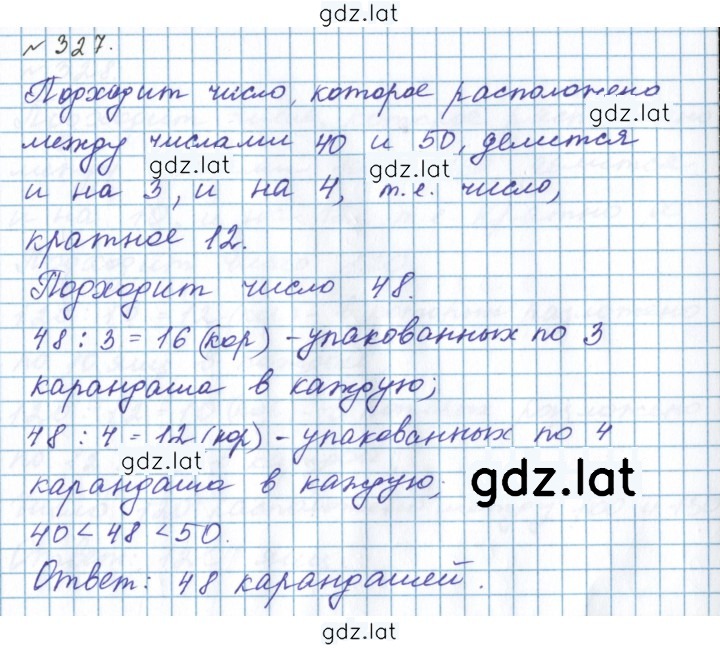 gdz.lat
№ 327.
Подходит число, которое расположено
gdz.lat
между числами 40 и 50, делится
gdz.lat gdz.lat
и на 3, и на 4, т.е. число,
кратное 12.
Подходит число 48.
48 : 3 = 16 (кор) - упакованных по 3
карандаша в каждую;
48 : 4 = 12 (кор) - упакованных по 4
gdz.lat
карандаша в каждую;
gdz.lat
40 < 48 < 50.
Ответ: 48 карандашей.
gdz.lat